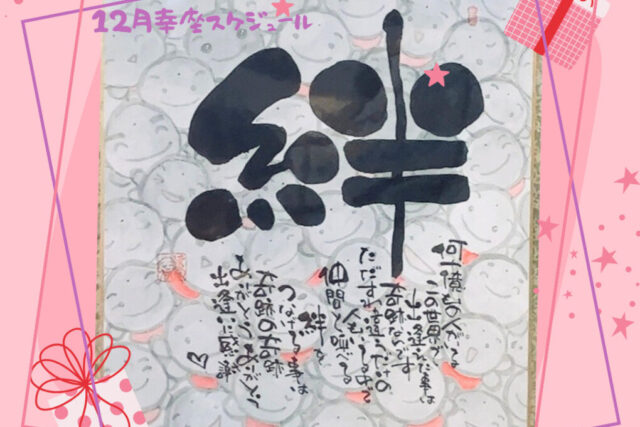 12月幸座スケジュール
絆
何億もの人がいる
この世界で
出逢えた事は
奇跡なんです
ただすれ違うだけの
人もいる中で
仲間と呼べる
絆を
つなげる事は
奇跡の奇跡
ありがとうありがとう
出逢いに感謝